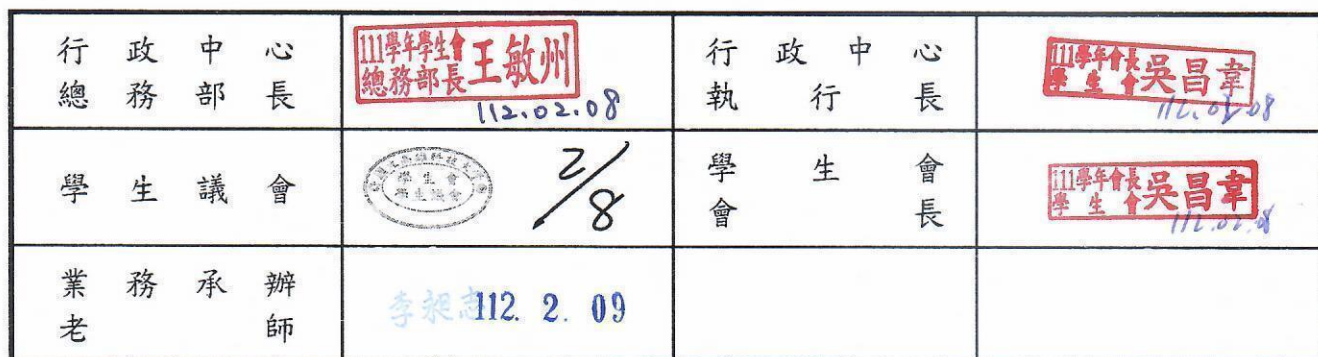 行政中心
總務部長
111學年學生會
總務部長王敏州
112.02.08
行政中心
執行長
111學年會長
學生會吳昌韋
112.02.08
學生議會
學生會
學生議會
2/8
學生會
會長
111學年會長
學生會吳昌韋
112.02.08
業務承辦
老師
李昶志112. 2. 09